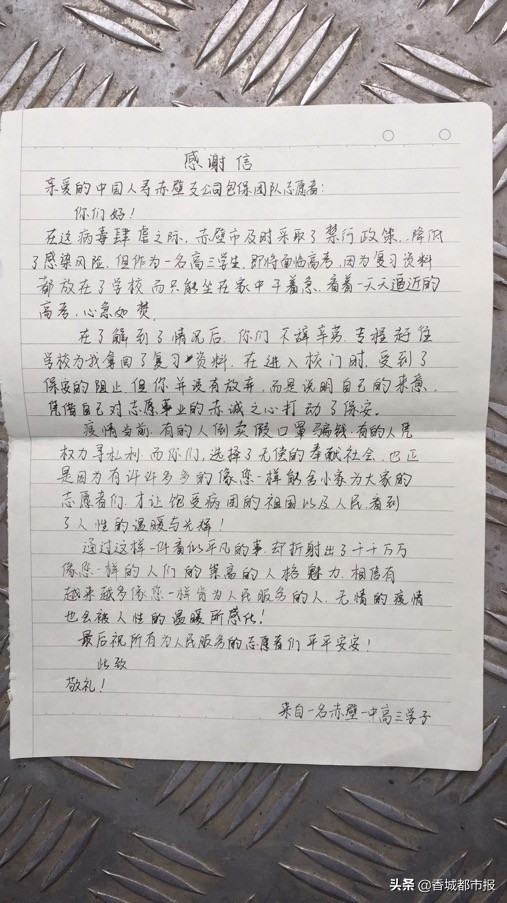 感谢信
亲爱的中国人寿赤壁支公司包保团队志愿者：
你们好！
在这病毒肆虐之际，赤壁市及时采取了禁行政策，降低
了感染风险，但作为一名高三学生，即将面临高考，因为复习资料
都放在了学校而只能坐在家中干着急，看着一天天逼近的
高考，心急如焚。
在了解到了情况后，你们不辞辛劳，专程赶往
学校为我拿回了复习资料，在进入校门时，受到了
保安的阻止，但你并没有放弃，而是说明自己的来意，
凭借自己对志愿事业的赤诚之心打动了保安。
疫情当前，有的人倒卖假口罩骗钱，有的人凭
权力寻私利，而你们，选择了无偿的奉献社会，也正
是因为有许许多多的像您一样能舍小家为大家的
志愿者们，才让饱受病困的祖国以及人民，看到
了人性的温暖与光辉！
通过这样一件看似平凡的事，却折射出了千千万万
像您一样的人们的崇高的人格魅力，相信有
越来越多像您一样肯为人民服务的人，无情的疫情
也会被人性的温暖所感化！
最后祝所有为人民服务的志愿者们平平安安！
此致
敬礼！
来自一名赤壁一中高三学子
头条 @香城都市报